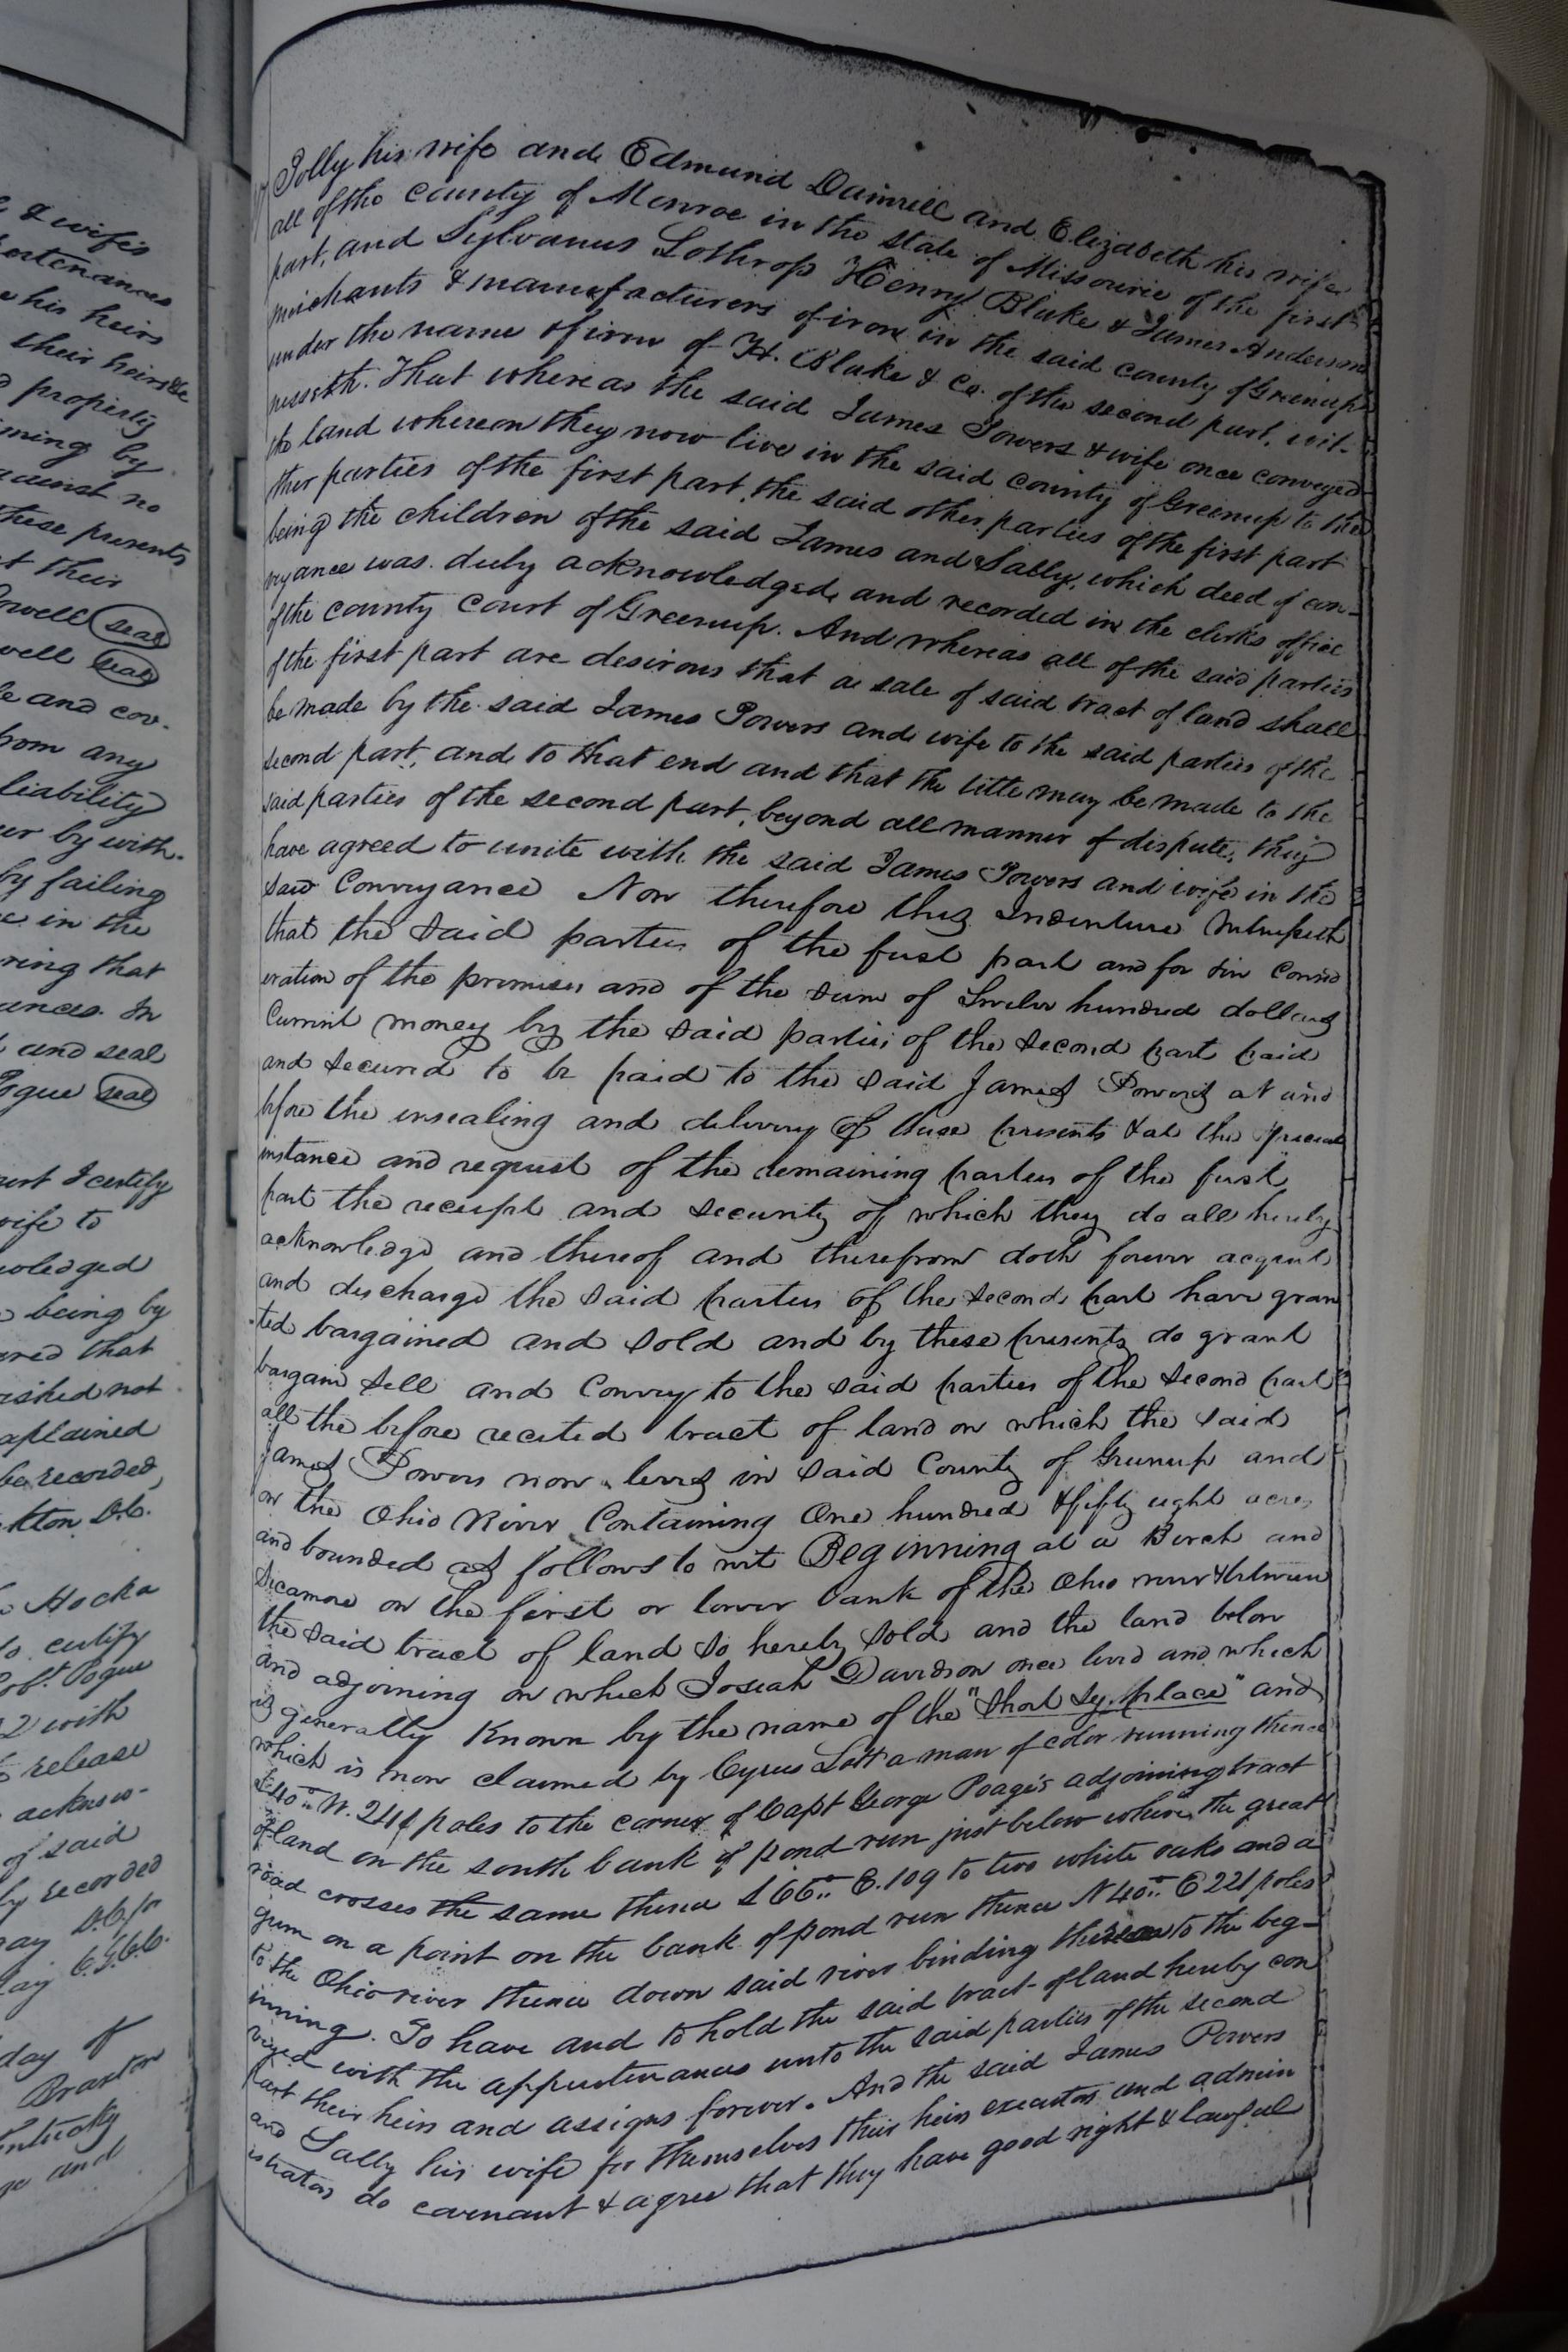 & wife's
his heirs
their heirs &c
property
ming by
against no
these presents
t their
owell seal
well seal
e and cov-
from any
liability
er by with-
by failing
e in the
ring that
ances. In
and seal
Pogue seal
ourt I certify
wife to
owledged
being by
ared that
wished not
xplained
be recorded,
kton D.C.
Hocka
to certify
obt. Pogue
2 with
release
acknow-
of said
ly recorded
day of
Braxton
Kentucky
ge and
Polly his wife and Edmund Damrell and Elizabeth his wife
all of the county of Monroe in the state of Missourie of the first
part, and Sylvanus Lothrop Henry Blake & James Anderson
merchants & manufacturers of iron in the said county of Greenup
under the name of firm of H. Blake & Co. of the second part, wit-
nesseth. That whereas the said James Powers & wife once conveyed
the land whereon they now live in the said county of Greenup to the
other parties of the first part, the said other parties of the first part
being the children of the said James and Sally, which deed of con-
veyance was duly acknowledged, and recorded in the clerks office
of the county court of Greenup. And whereas all of the said parties
of the first part are desirous that a sale of said tract of land shall
be made by the said James Powers and wife to the said parties of the
second part, and to that end and that the title may be made to the
said parties of the second part, beyond all manner of dispute, they
have agreed to unite with the said James Powers and wife in the
said Conveyance Now therefore this Indenture Witnesseth
that the said parties of the first part and for & in Consid
eration of the premises and of the sum of Twelve hundred dollars
Current money by the said parties of the second part paid
and secured to be paid to the said James Powers at and
before the ensealing and delivery of these presents & at the special
instance and request of the remaining parties of the first
part the receipt and security of which they do all hereby
acknowledge and thereof and therefrom doth forever acquit
and discharge the said parties of the second part have gran
ted bargained and sold and by these presents do grant
bargain sell and Convey to the said parties of the second part
all the before recited tract of land on which the said
James Powers now lives in said County of Greenup and
on the Ohio River Containing One hundred & fifty eight acres
and bounded as follows to wit Beginning at a Birch and
Sicamore on the first or lower bank of the Ohio river & between
the said tract of land so hereby sold and the land below
and adjoining on which Josiah Davidson once lived and which
is generally Known by the name of the "Short place" and
which is now claimed by Cyrus Lott a man of color running thence
S 40° W. 244 poles to the corner of Capt George Poage's adjoining tract
of land on the south bank of pond run just below where the great
road crosses the same thence S 66° E. 109 to two white oaks and a
gum on a point on the bank of pond run thence N 40° E 221 poles
to the Ohio river thence down said river binding thereon to the beg-
inning. To have and to hold the said tract of land hereby con
veyed with the appurtenances unto the said parties of the second
part their heirs and assigns forever. And the said James Powers
and Sally his wife for themselves their heirs executors and admin
istrators do covenant & agree that they have good right & lawful